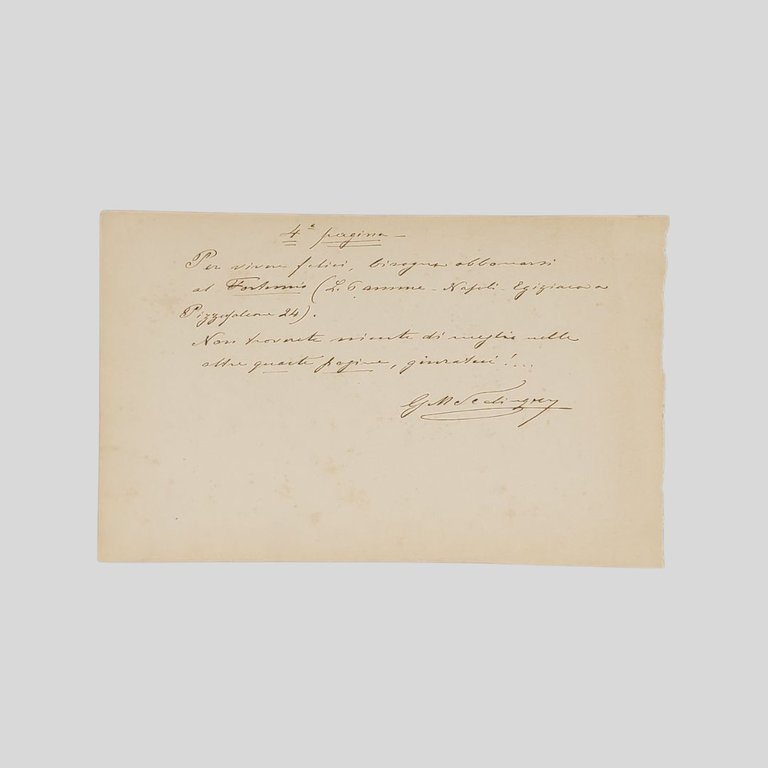 4ª pagina —
Per vivere felici, bisogna abbonarsi
al Fortunio (L. 5 annue - Napoli - Egiziaca a
Pizzofalcone 24).
Non troverete niente di meglio nelle
altre quarte pagine, giuratevi!...
G M